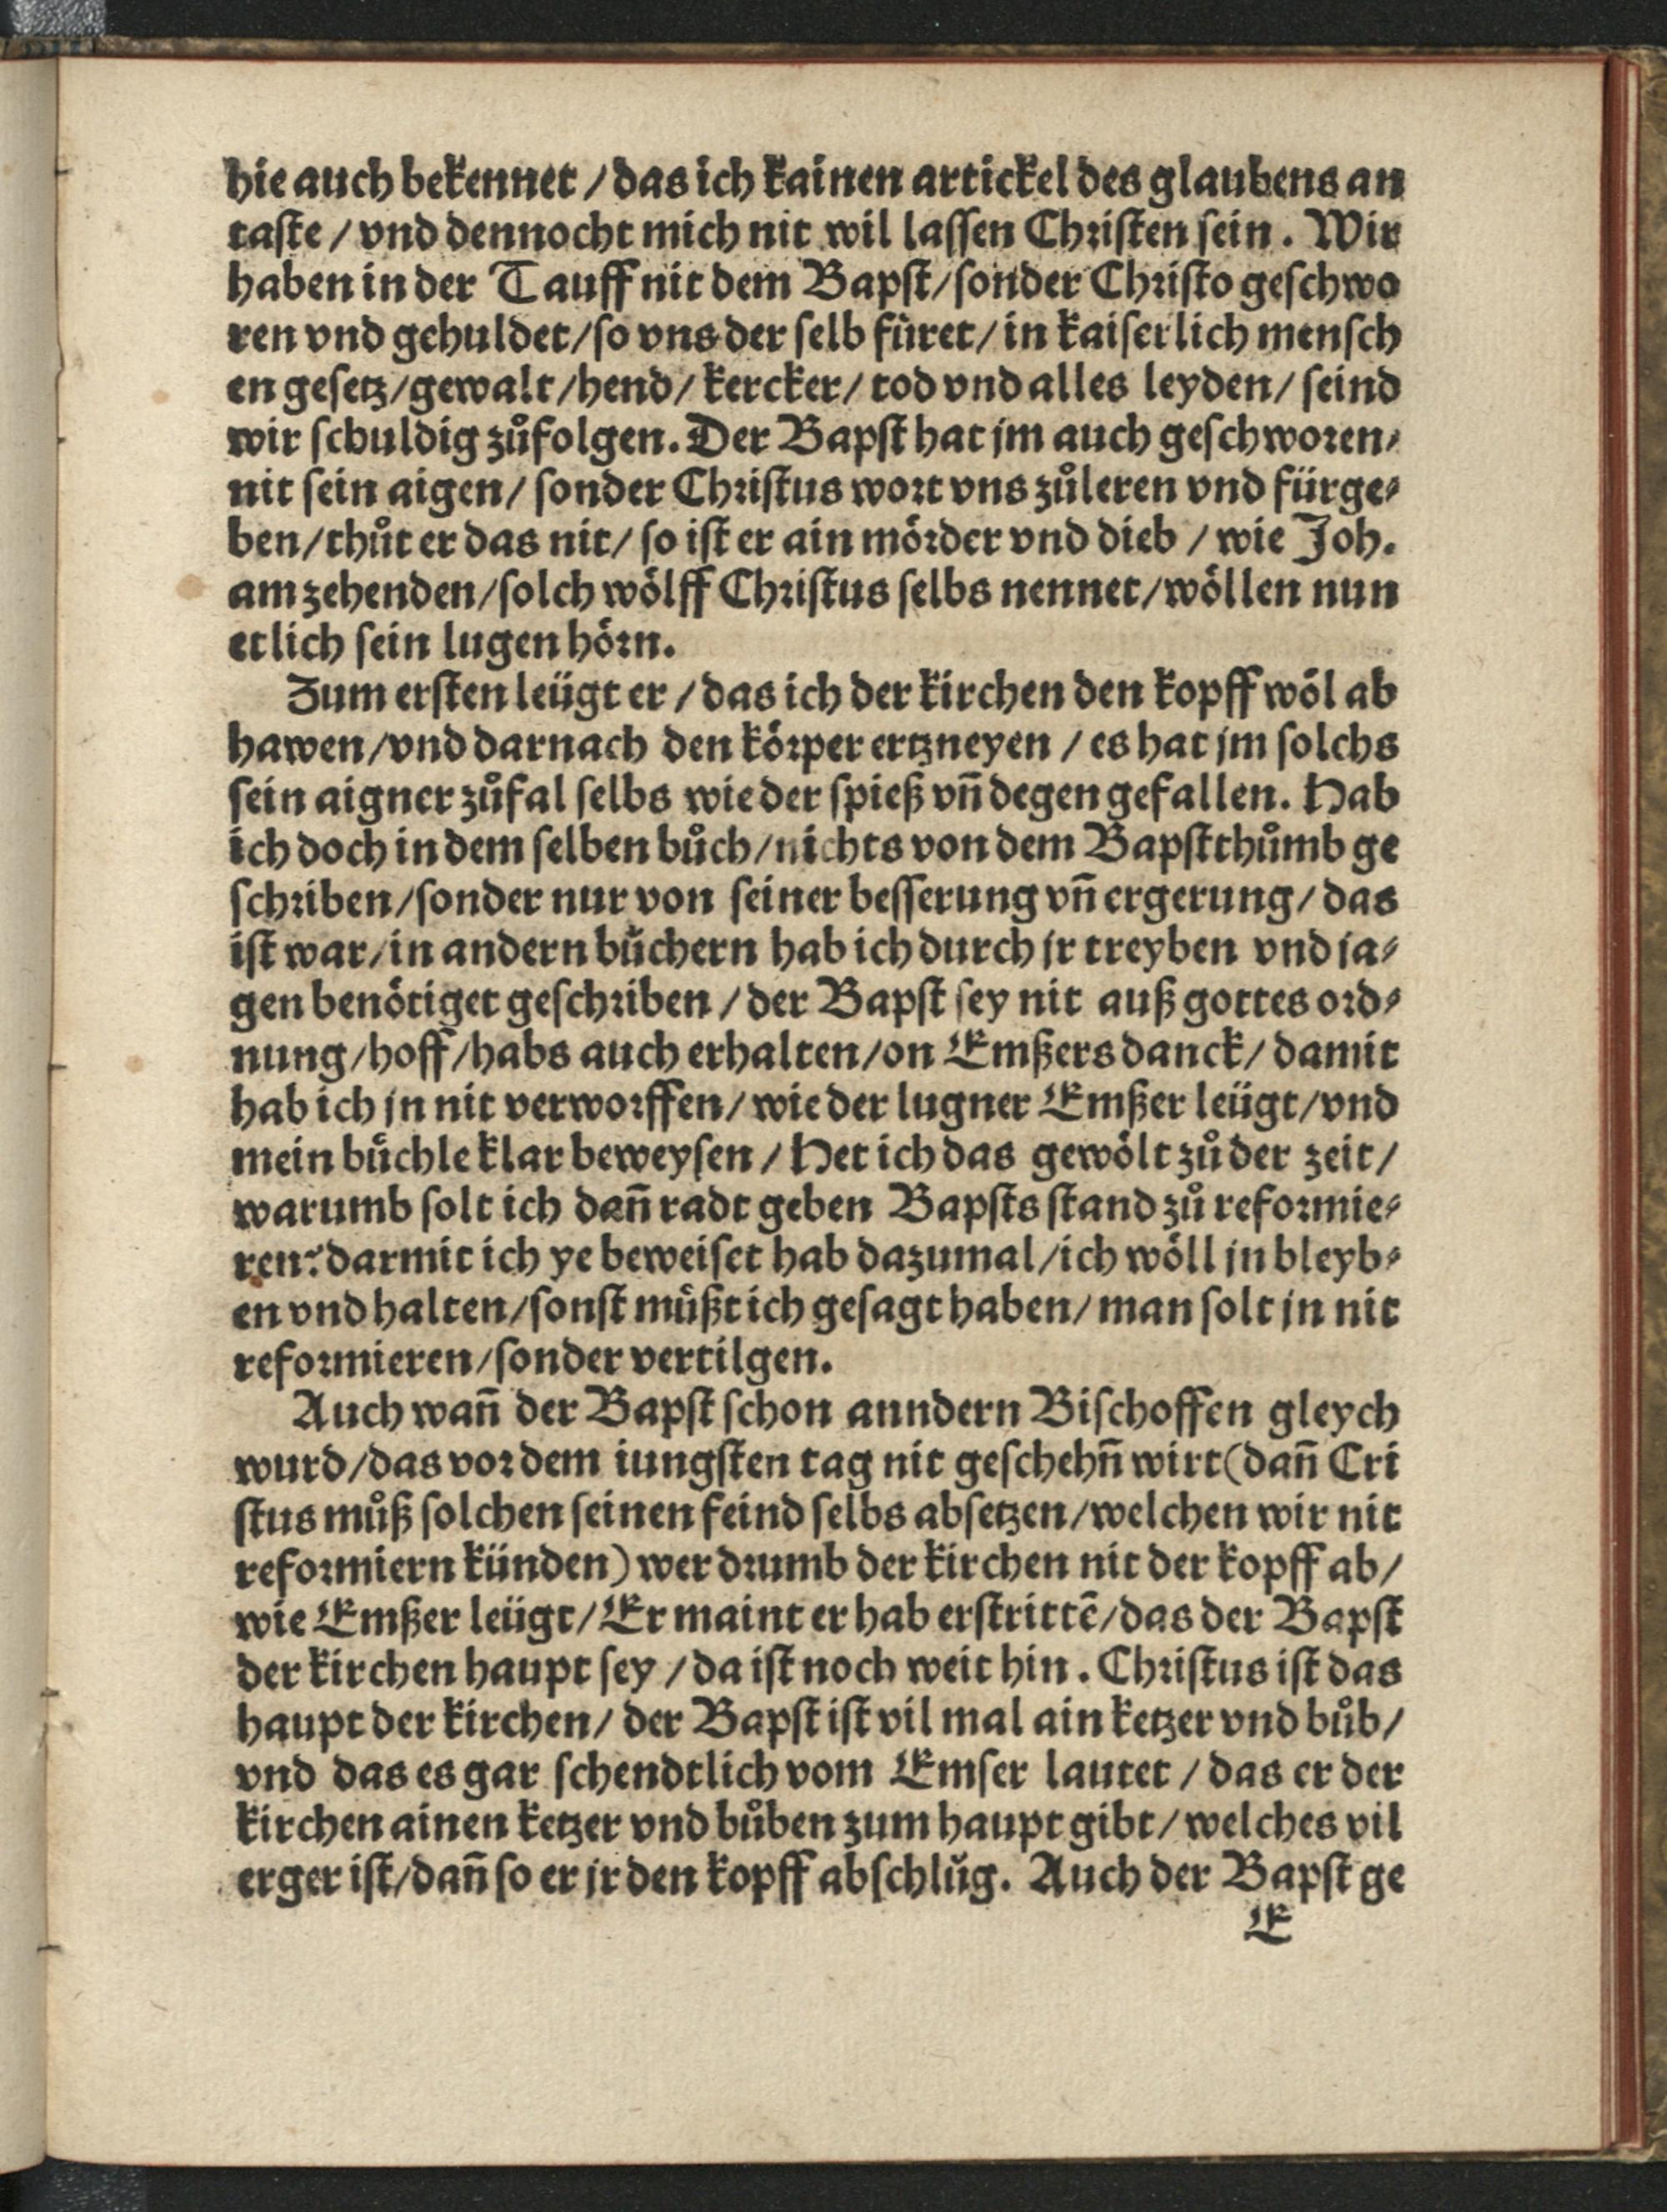 hie auch bekennet / das ich kainen artickel des glaubens an
taſte / vnd dennocht mich nit wil laſſen Chꝛiſten ſein . Wir
haben in der Tauff nit dem Bapſt / ſonder Chꝛiſto geſchwo
ren vnd gehuldet / ſo vns der ſelb fuͤret / in kaiſerlich menſch
en geſetz / gewalt / hend / kercker / tod vnd alles leyden / ſeind
wir ſchuldig zuͦfolgen. Der Bapſt hat jm auch geſchwoꝛen /
nit ſein aigen / ſonder Chꝛiſtus woꝛt vns zuͦleren vnd fürge⸗
ben / thuͦt er das nit / ſo iſt er ain moͤꝛder vnd dieb / wie Joh.
am zehenden / ſolch woͤlff Chꝛiſtus ſelbs nennet / woͤllen nun
etlich ſein lugen hoͤꝛn.
Zum erſten leügt er / das ich der kirchen den kopff woͤl ab
hawen / vnd darnach den koͤꝛper ertzneyen / es hat jm ſolchs
ſein aigner zuͦfal ſelbs wie der ſpieß vñ degen gefallen. Hab
ich doch in dem ſelben buͦch / nichts von dem Bapſtthuͦmb ge
ſchꝛiben / ſonder nur von ſeiner beſſerung vñ ergerung / das
iſt war / in andern buͤchern hab ich durch jr treyben vnd ja⸗
gen benoͤtiget geſchꝛiben / der Bapſt ſey nit auß gottes oꝛd⸗
nung / hoff / habs auch erhalten / on Emßers danck / damit
hab ich jn nit verwoꝛffen / wie der lugner Emßer leügt / vnd
mein buͤchle klar beweyſen / Het ich das gewoͤlt zuͦ der zeit /
warumb ſolt ich dañ radt geben Bapſts ſtand zuͦ refoꝛmie⸗
ren? darmit ich ye beweiſet hab dazumal / ich woͤll jn bleyb⸗
en vnd halten / ſonſt muͤßt ich geſagt haben / man ſolt jn nit
refoꝛmieren / ſonder vertilgen.
Auch wañ der Bapſt ſchon anndern Biſchoffen gleych
wurd / das voꝛ dem iungſten tag nit geſchehñ wirt (dañ Cri
ſtus muͦß ſolchen ſeinen feind ſelbs abſetzen / welchen wir nit
refoꝛmiern künden) wer dꝛumb der kirchen nit der kopff ab /
wie Emßer leügt / Er maint er hab erſtrittē / das der Bapſt
der kirchen haupt ſey / da iſt noch weit hin . Chꝛiſtus iſt das
haupt der kirchen / der Bapſt iſt vil mal ain ketzer vnd buͦb /
vnd das es gar ſchendtlich vom Emſer lautet / das er der
kirchen ainen ketzer vnd buͦben zum haupt gibt / welches vil
erger iſt / dañ ſo er jr den kopff abſchluͤg. Auch der Bapſt ge
E